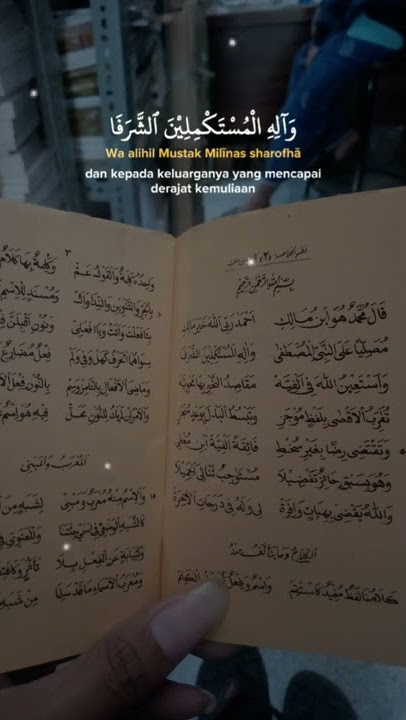 وَآلِهِ الْمُسْتَكْمِلِيْنَ الشَّرَفَا
Wa alihil Mustak Milīnas sharofhā
dan kepada keluarganya yang mencapai
derajat kemuliaan
٢
بسم الله الرحمن الرحيم
قال محمد هو ابن مالك احمد ربي الله خير مالك
مصليا على النبي المصطفى واله المستكملين الشرفا
واستعين الله في الفيه مقاصد النحو بها محويه
تقرب الاقصى بلفظ موجز وتبسط البذل بوعد منجز
٥ وتقتضي رضا بغير سخط فائقة الفية ابن معطي
وهو بسبق حائز تفضيلا مستوجب ثنائي الجميلا
والله يقضي بهبات وافرة لي وله في درجات الاخرة
الكلام وما يتألف منه
كلامنا لفظ مفيد كاستقم واسم وفعل الكلم
٣
واحده كلمة والقول عم وكلمة بها كلام
١٠ بالجر والتنوين والندا وال ومسند للاسم
بتا فعلت واتت ويا افعلي ونون اقبلن
سواهما الحرف كهل وفي ولم فعل مضارع
وماضي الافعال بالتا مز وسم بالنون فعل
والامر ان لم يك للنون محل فيه هو اسم
المعرب والمبني
١٥ والاسم منه معرب ومبني لشبه من
كالشبه الوضعي في اسمي جئتنا والمعنوي في
وكنيابة عن الفعل بلا تأثر
ومعرب الاسماء ما قد سلما من شبه